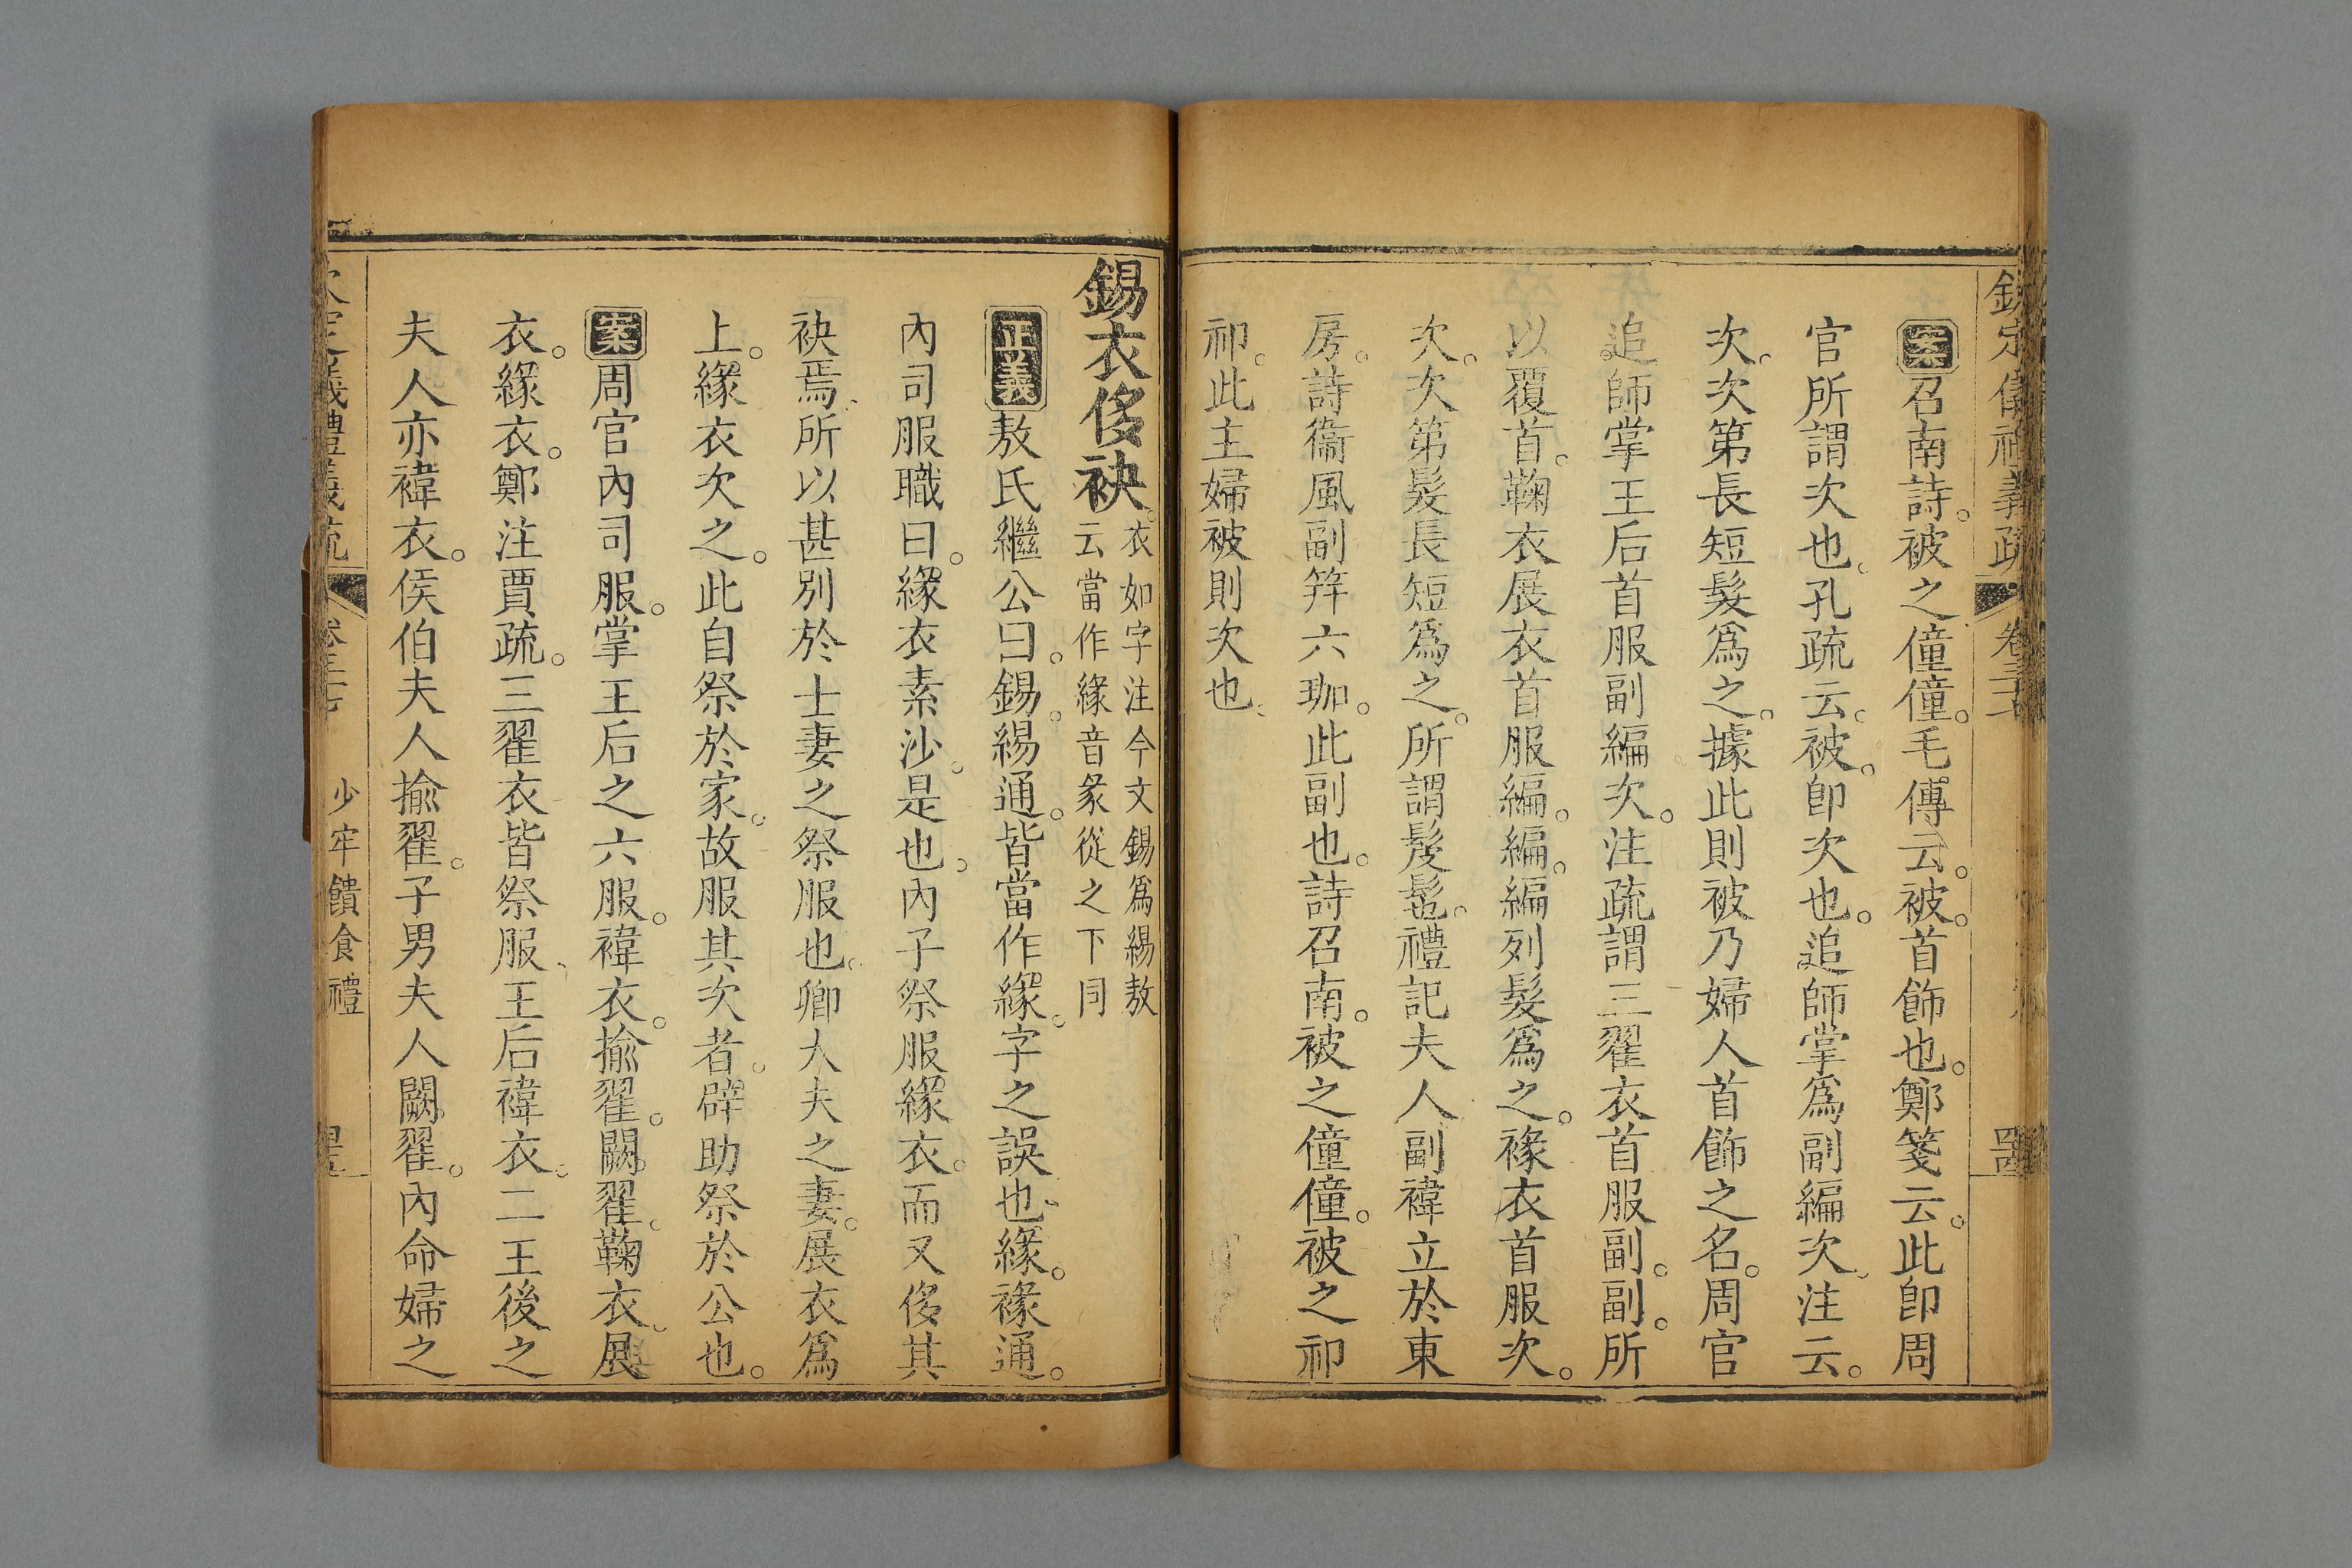 欽定儀禮義疏 卷三十七
案召南詩。被之僮僮。毛傳云。被。首飾也。鄭箋云。此卽周
官所謂次也。孔疏云。被。卽次也。追師掌爲副編次。注云。
次。次第長短髮爲之。據此則被乃婦人首飾之名。周官
追師掌王后首服副編次。注疏謂三翟衣首服副。副。所
以覆首。鞠衣展衣首服編。編。編列髮爲之。褖衣首服次。
次。次第髮長短爲之。所謂髲髢。禮記夫人副褘立於東
房。詩衞風副筓六珈。此副也。詩召南。被之僮僮。被之祁
祁。此主婦被則次也。
錫衣侈袂。
衣如字注今文錫爲緆敖
云當作緣音彖從之下同
正義敖氏繼公曰。錫。緆通。皆當作緣。字之誤也。緣。褖通。
內司服職曰。緣衣素沙。是也。內子祭服緣衣。而又侈其
袂焉。所以甚別於士妻之祭服也。卿大夫之妻。展衣爲
上。緣衣次之。此自祭於家。故服其次者。辟助祭於公也。
案周官內司服。掌王后之六服。褘衣。揄翟。闕翟。鞠衣。展
衣。緣衣。鄭注賈疏。三翟衣皆祭服。王后褘衣。二王後之
夫人亦褘衣。侯伯夫人揄翟。子男夫人闕翟。內命婦之
欽定儀禮義疏 卷三十七 少牢饋食禮